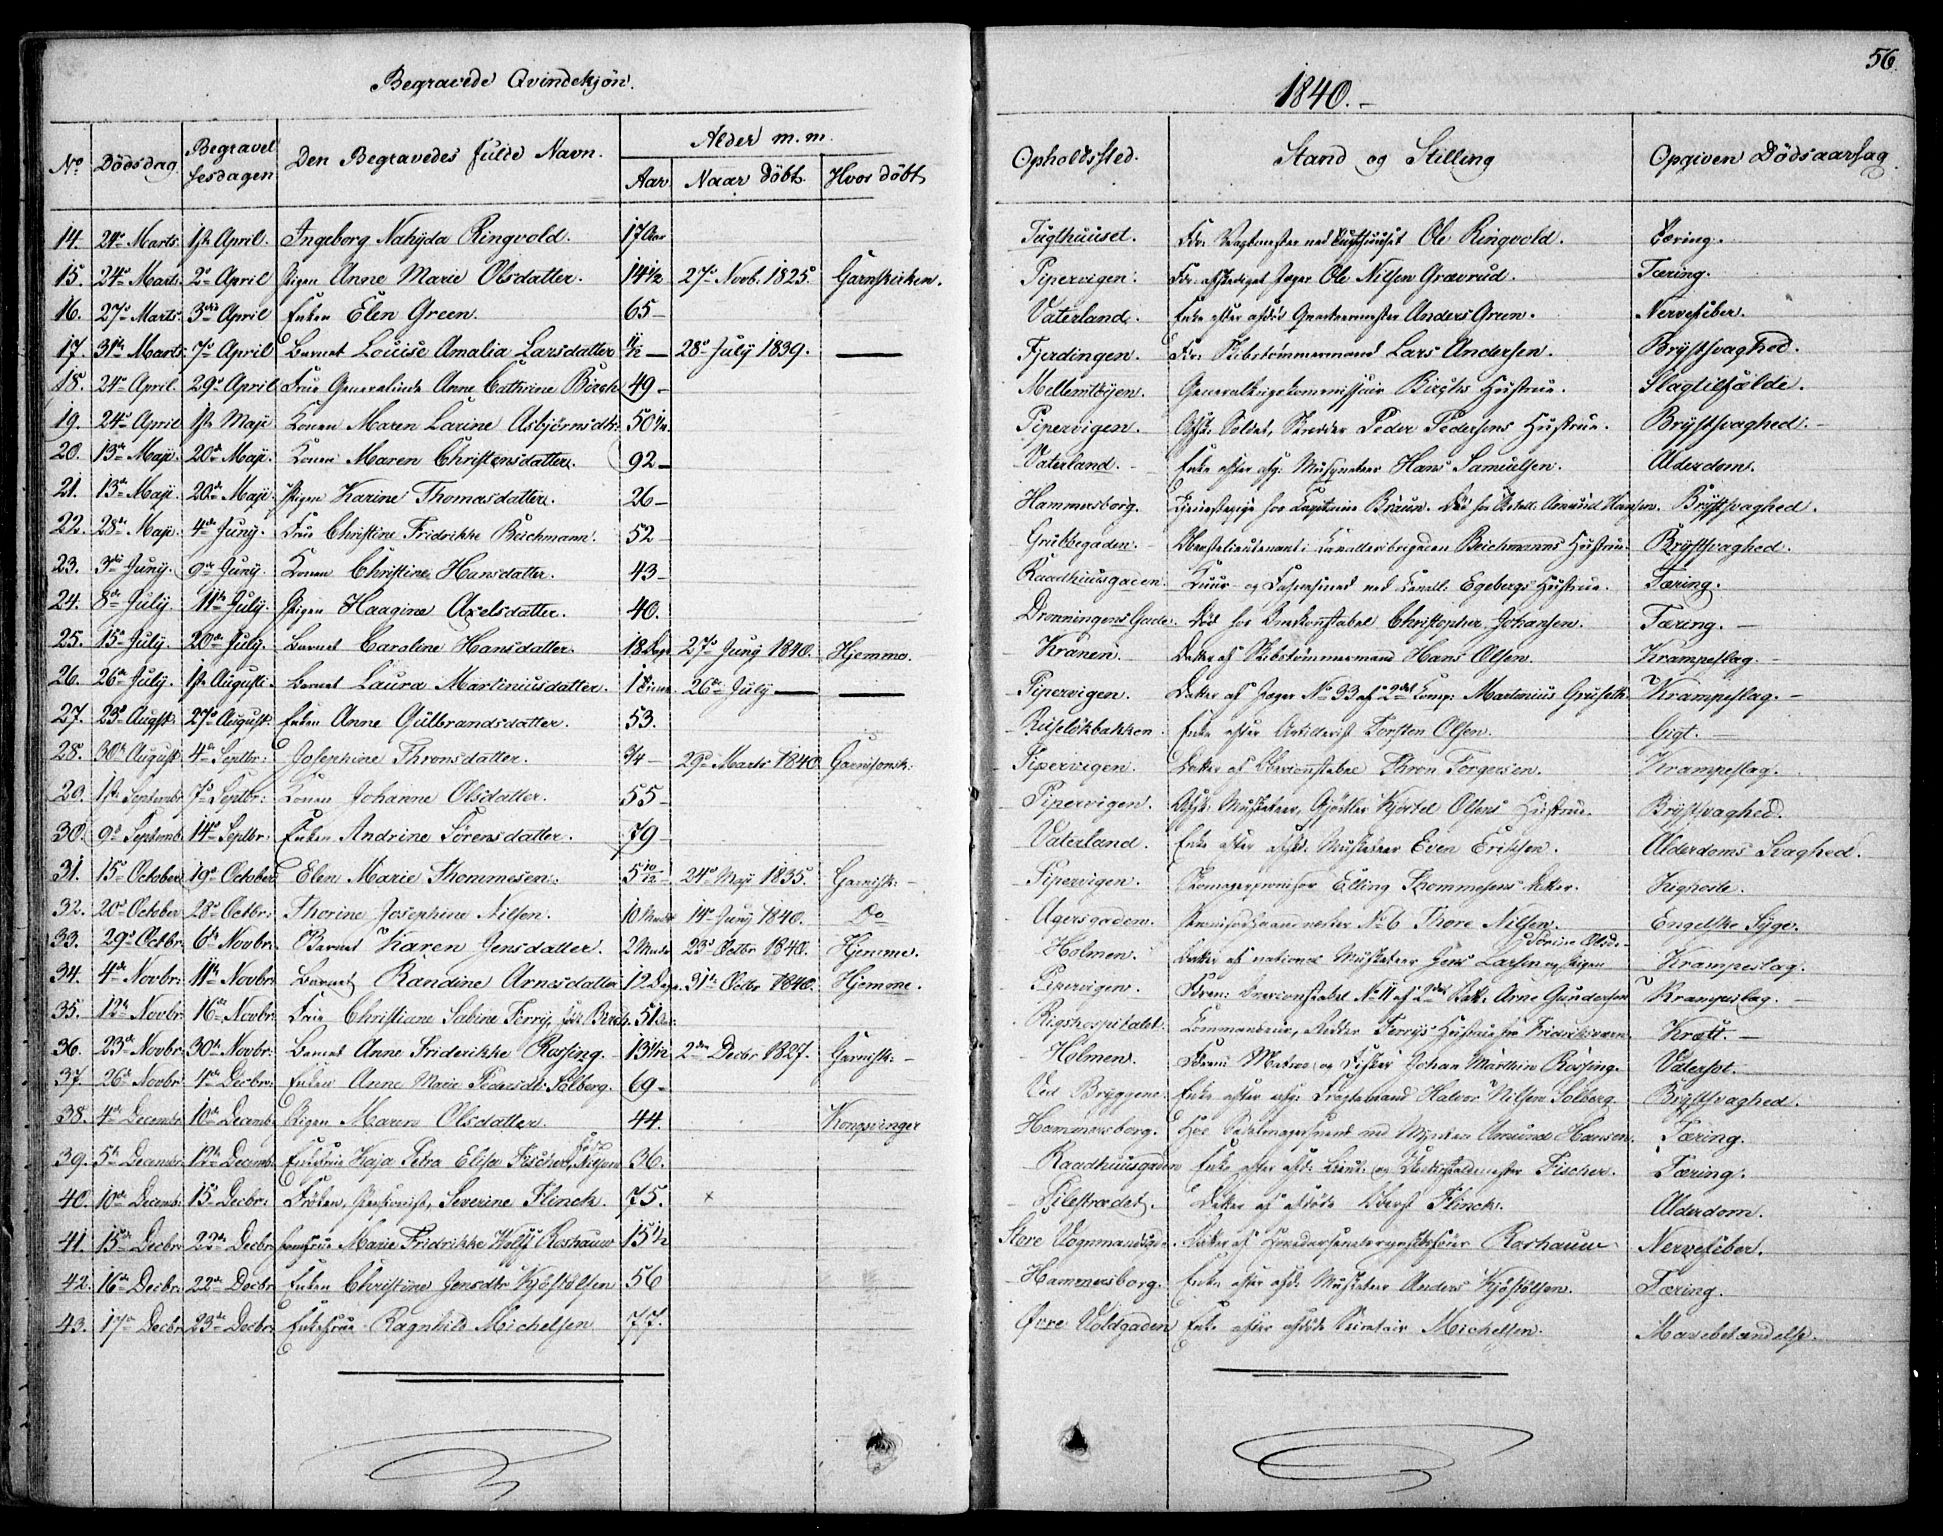 56
Begravede Qvindekjön.
1840.-
No Dödsdag Begravelsesdagen Den Begravedes fulde Navn. Alder m.m. Opholdssted. Stand og Stilling Opgiven Dödsaarsag
Aar Naar döbt Hvor döbt
14. 24de Marts. 1ste April. Ingeborg Nahÿda Ringvold. 17 Aar Tugthuuset. Ole Ringvold. Tæring.
15. 24de Marts. 2den April Pigen Anne Marie Olsdatter. 14 1/2 27de Novb. 1825. Garnskirken. Pipervigen. Fdr. afskediget Jæger Ole Nilsen Grævrud. Tæring.
16. 27de Marts. 3die April Enken Elen Green. 65 - Vaterland. Enke efter afdöd Qvarteermester Anders Green. Nervefeber.
17. 31te Marts. 7de April Barnet Louise Amalia Larsdatter 11/12 - 28de July 1839. - Fjerdingen. Fdr. Skibstømmermand Lars Andersen. Brÿstsvaghed.
18. 24de April. 29de April Frue Generalinde Anne Cathrine Birch 49 - Mellemtöijen. Generalkrigskommissair Birchs Hustrue. Slagtilfælde.
19. 24de April 1ste Maji Konen Maren Larine Asbjörnsdtr. 50 1/2. Pipervigen. Afsk. Soldat, Skredder Peder Pedersens Hustrue. Brÿstsvaghed. -
20. 13de Maji. 20de Maji. Konen Maren Christensdatter. 92 - Vaterland. - Enke efter afg. Musqueteer Hans Samuelsen. Alderdom.
21. 13de Maji. 20de Maji. Pigen Karine Thomasdatter. 26 - Hammersborg. Tjenestepige hos Capitaine Braun. Död hos Amund Hansen. Brÿstsvaghed.
22. 28de Maji. 4de Juny. Frue Christine Fridrikke Beichmann. 52 - Grubbegaden. Oberstlieutenant i Cavalleribrigaden Beichmanns Hustrue. Brÿstsvaghed.
23. 3die Juny. 9de Juny. Konen Christine Hansdatter. 43 - Raadhuusgaden. Egebergs Hustrue. Tæring.
24. 8de July. 11te July. Pigen Haagine Axelsdatter. 40. Dronningens Gade. Död hos Christopher Johansen. Tæring. -
25. 15de July. 20de July. Barnet Caroline Hansdatter. 18 Dage 27de Juny 1840. Hjemme. Kranen. Datter af Skibstømmermand Hans Olsen. Krampeslag. -
26. 26de July. 1ste Augusti. Barnet Laura Martiniusdatter. 1 Time. 26de July - - Pipervigen. Datter af Jæger No 33 af 2det Comp: Martinius Gruseth. Krampeslag. -
27. 23de Augst. 27de August. Enken Anne Gulbrandsdatter. 53. Ruselökbakken. Enke efter Artillerist Torsten Olsen. Gigt. -
28. 30te August. 4de Septbr: Josephine Thronsdatter. 3/4 - 29de Marts 1840. Garnisonsk: Pipervigen. Datter af Thron Torgersen. Krampeslag.
29. 1ste Septembr. 7de Septbr: Konen Johanne Olsdatter. 55 - Pipervigen. Afsk. Musketeer, Kjøstel Olsens Hustrue. Brÿstsvaghed.
30. 9de Septemb. 14de Septbr: Enken Andrine Sörensdatter. 79 - Vaterland. Enke efter afsk. Musketeer Even Eriksen. Alderdoms Svaghed.
31. 15de October 19de October. Elen Marie Thommesen. 5 10/12 - 24de Maji 1835. Garnisk: - Pipervigen. Elling Thommesens Datter. Kighoste.
32. 20de October 28de Octbr: Thorine Josephine Nilsen. 10 14de Juny 1840. Do Agersgaden. No 6 Thore Nilsen. Engelske Syge.
33. 29de Octbr. 6te Novbr: Barnet Karen Jensdatter. 2 23de Octbr 1840. Hjemme. Holmen. Datter af national Musketeer Jens Larsen og Pigen Torine Olsd. Krampeslag.
34. 4de Novbr: 11te Novbr: Barnet Randine Arnesdatter 12 Dage. 31te Octbr 1840. Hjemme. Pipervigen. No 11 af 2det Arne Gundersen Krampeslag. -
35. 12te Novbr. 16de Novbr: Frue Christiane Sabine Ferry, föd Birch. 51 Rigshospitalet. Commandeur, Ridder Ferrys Hustrue fra Fridriksværn. Kræft. -
36. 23de Novbr: 30te Novbr: Barnet Anne Friderikke Rossing. - 13 1/2 2den Decbr 1827. Garnisk: - Holmen. Matros og Fisker Johan Marthin Rossing. Vatersot.
37. 26de Novbr. 4de Decbr: Enken Anne Marie Pedersdtr Solberg. 69 - Ved Bryggene. Enke efter afg. Halvor Nilsen Solberg. Brÿstsvaghed.
38. 4de Decembr. 10de Decemb. Pigen Maren Olsdatter. 44. Kongsvinger Hammersborg. Amund Hansen. Tæring.
39. 5te Decembr. 12te Decemb. Enkefrue Kaja Petra Elisa Fischer, född Nilsen 36. Raadhuusgaden Enke efter afdöde Lieut. Fischer. Tæring.
40. 10de Decemb: 15de Decbr: Fröken, Pensionist, Severine Flinck. 75. × Pilestrædet. Datter af afdöde Oberst Flinck. Alderdom.
41. 15de Decbr: 22de Decbr. Jomfrue Marie Fridrikke Wolff Roshauw 15 1/2 Store Vognmandsgd. Datter af Roshauw Nervefeber.
42. 16de Decbr: 22de Decbr Enken Christine Jensdtr Kjöstolsen 56 Hammersborg. Enke efter afsk. Musketeer Anders Kjöstolsen. Tæring.
43. 17de Decbr. 23de Decbr: Enkefrue Ragnhild Michelsen 77. Övre Voldgaden Enke efter afdöde Secretair Michelsen. Mavebetændelse.